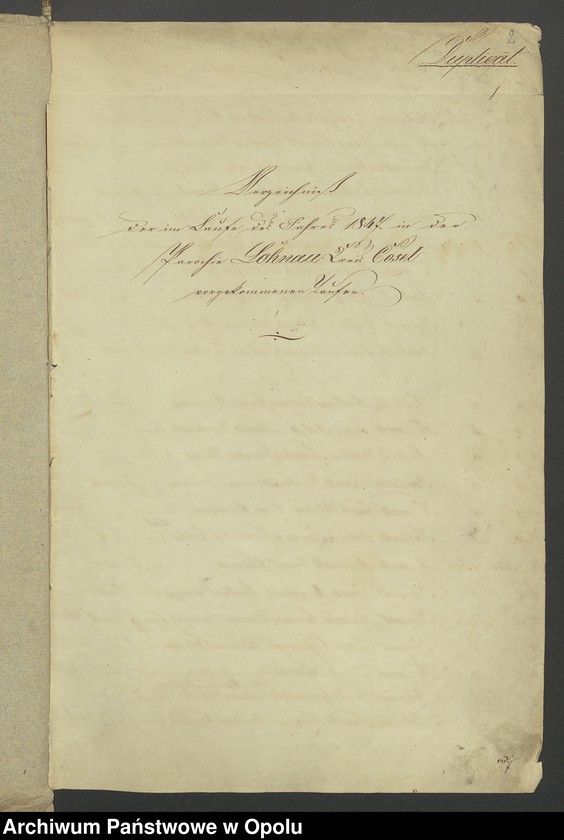 2
Duplicat.
Verzeichniß
der im Laufe des Jahres 1847. in der
Parochie Lohnau Kreis Cosel
vorgekommenen Taufen.
Archiwum Państwowe w Opolu